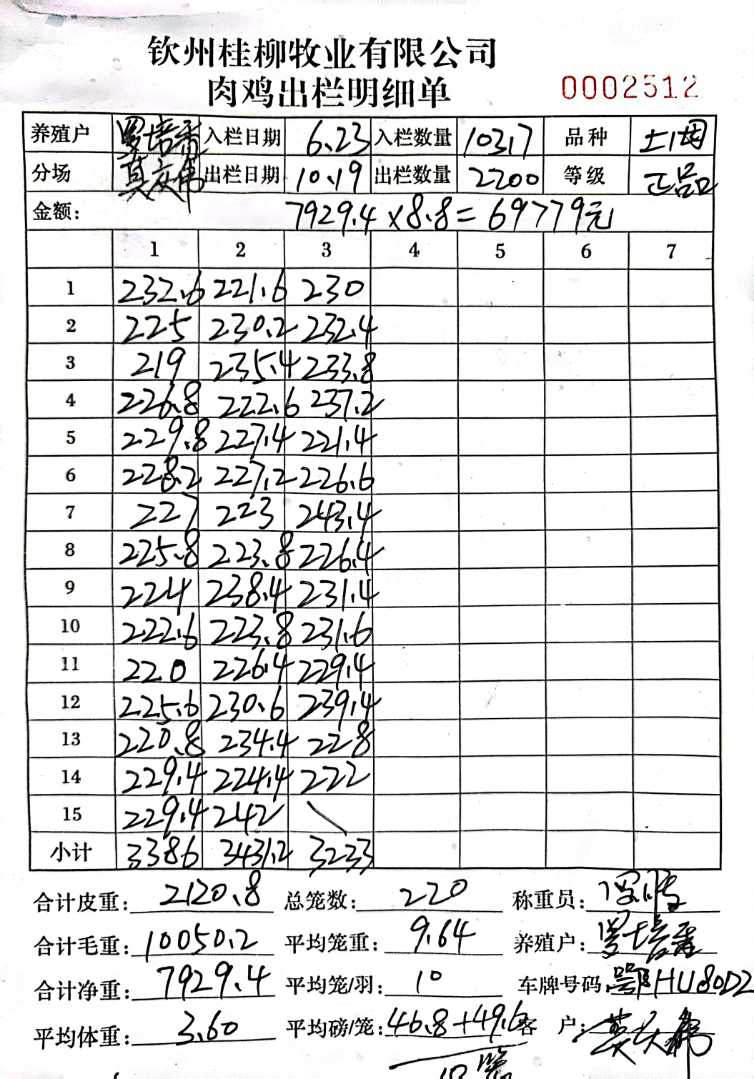 钦州桂柳牧业有限公司
肉鸡出栏明细单 0002512
养殖户 罗培香 入栏日期 6.23 入栏数量 10317 品种
分场 出栏日期 10.19 出栏数量 2200 等级 正品
金额: 7929.4×8.8=69779元
1 2 3 4 5 6 7
1 232.6 221.6 230
2 225 230.2 232.4
3 219 235.4 233.8
4 226.8 222.6 237.2
5 229.8 227.4 221.4
6 228.2 227.2 226.6
7 227 223 243.4
8 225.8 223.8 226.4
9 224 238.4 231.4
10 222.6 223.8 231.6
11 220 226.4 229.4
12 225.6 230.6 239.4
13 220.8 234.4 228
14 229.4 224.4 222
15 229.4 242 \
小计 3386 3431.2 3233
合计皮重: 2120.8 总笼数: 220 称重员:
合计毛重: 10050.2 平均笼重: 9.64 养殖户: 罗培香
合计净重: 7929.4 平均笼/羽: 10 车牌号码: 鄂HU80D2
平均体重: 3.60 平均磅/笼: 46.8+49.6 客户: